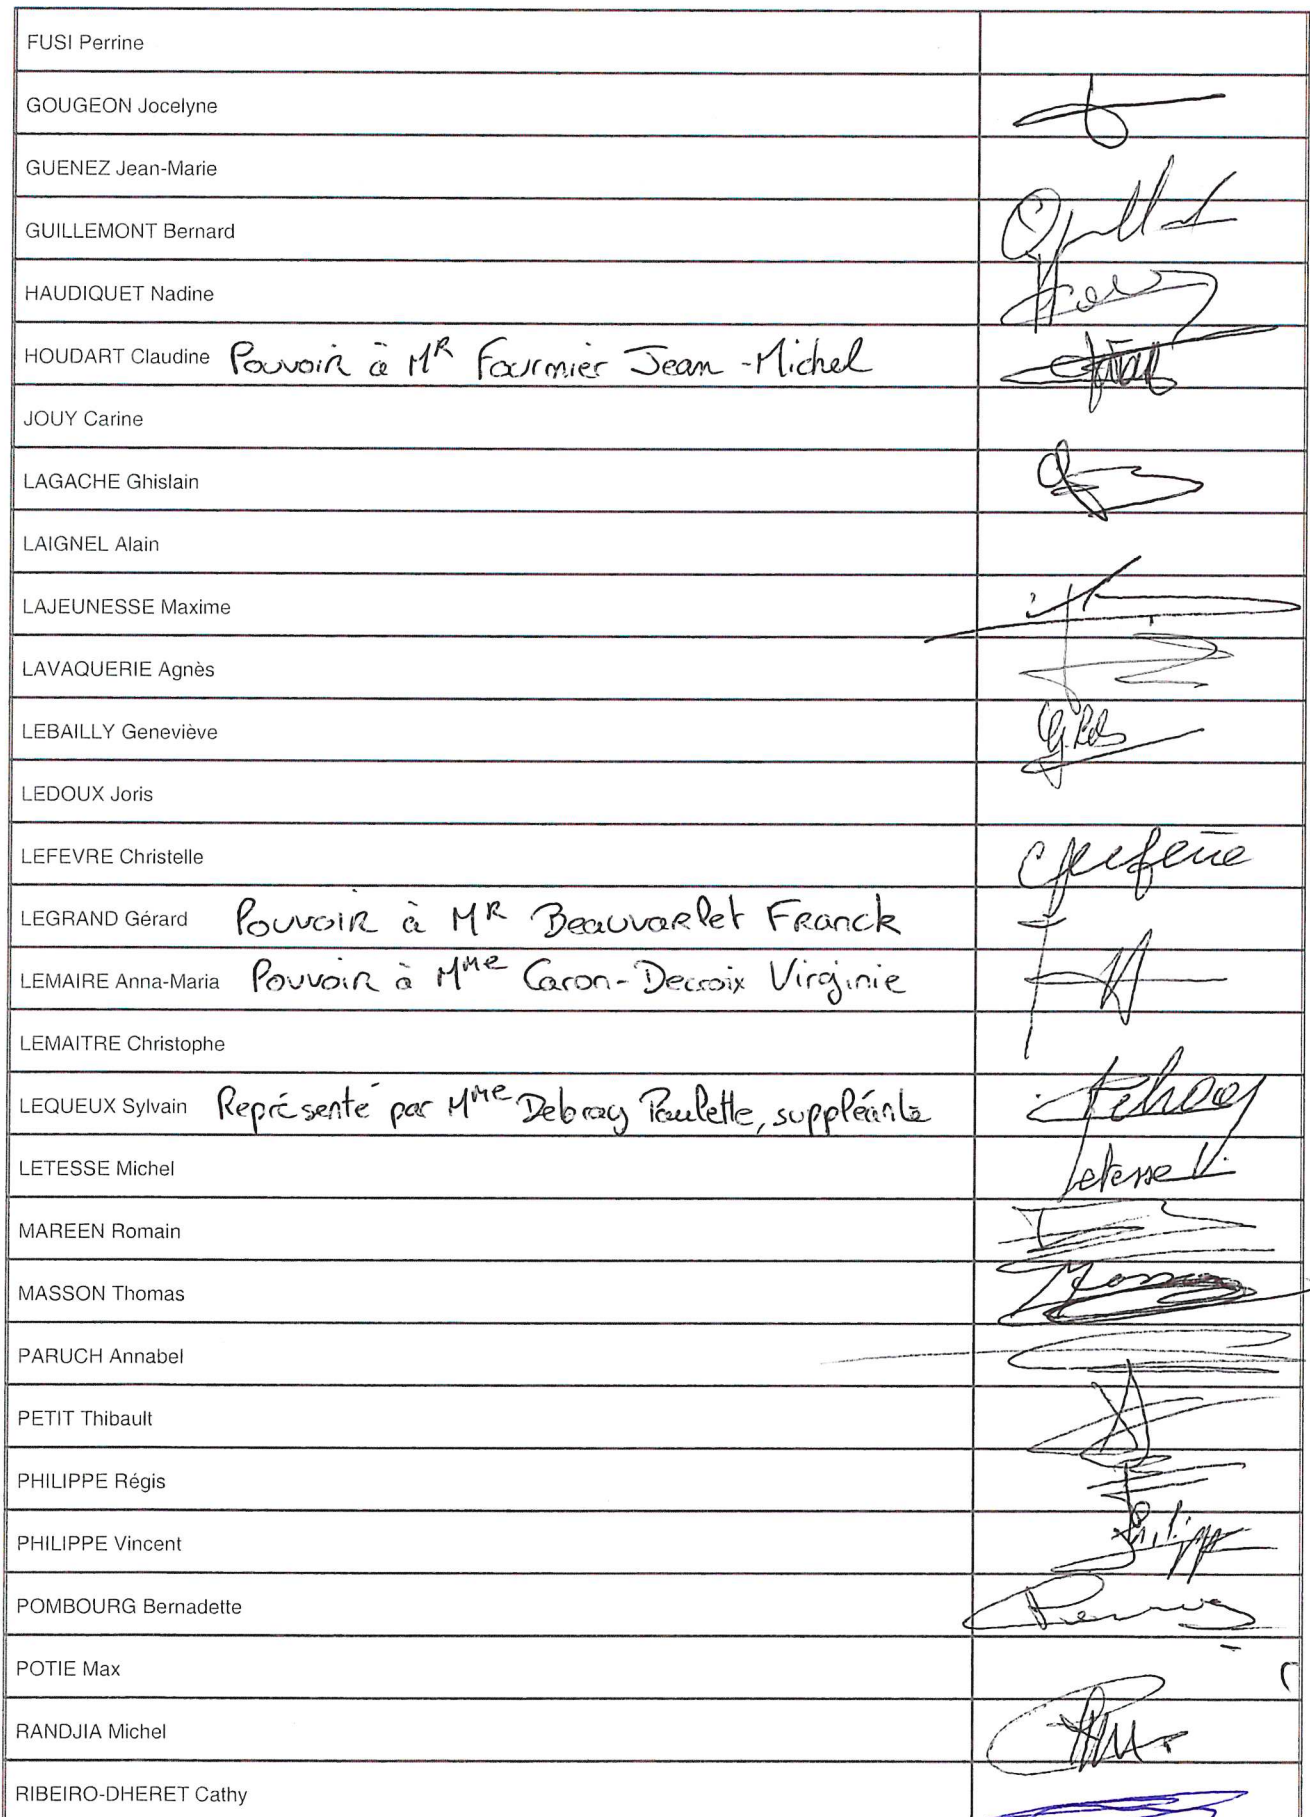 FUSI Perrine
GOUGEON Jocelyne
GUENEZ Jean-Marie
GUILLEMONT Bernard
HAUDIQUET Nadine
HOUDART Claudine Pouvoir à MR Fourmier Jean-Michel
JOUY Carine
LAGACHE Ghislain
LAIGNEL Alain
LAJEUNESSE Maxime
LAVAQUERIE Agnès
LEBAILLY Geneviève
LEDOUX Joris
LEFEVRE Christelle
LEGRAND Gérard Pouvoir à MR Beauvarlet Franck
LEMAIRE Anna-Maria Pouvoir à Mme Caron-Decroix Virginie
LEMAITRE Christophe
LEQUEUX Sylvain Représenté par Mme Debray Paulette, suppléante
LETESSE Michel Letesse
MAREEN Romain
MASSON Thomas
PARUCH Annabel
PETIT Thibault
PHILIPPE Régis
PHILIPPE Vincent
POMBOURG Bernadette
POTIE Max
RANDJIA Michel
RIBEIRO-DHERET Cathy